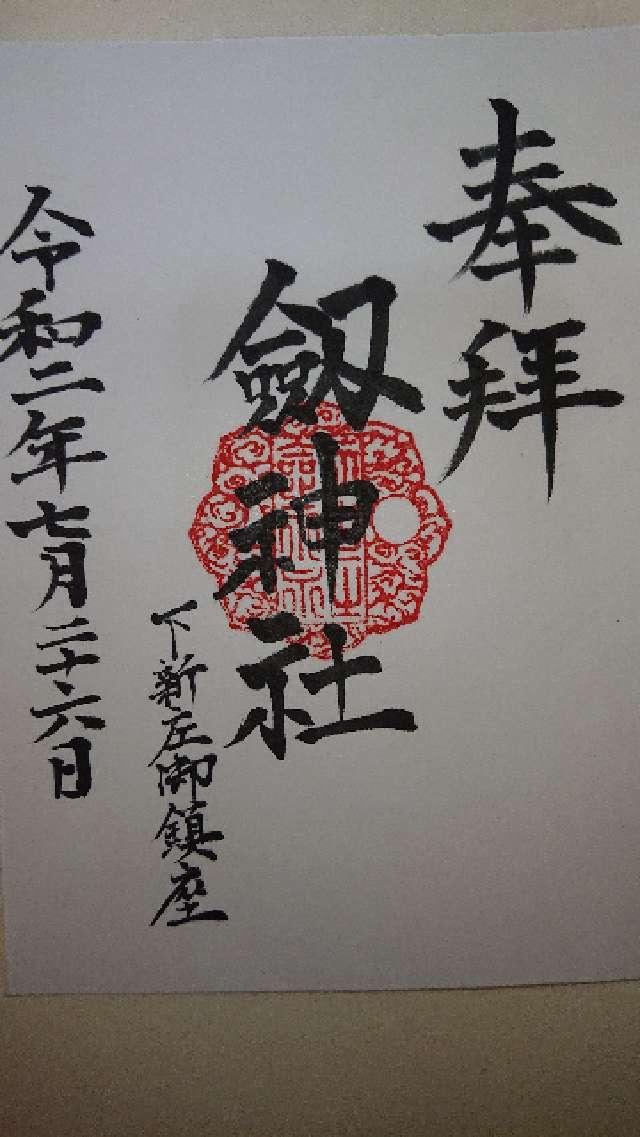 奉拜
劔神社
下新庄御鎮座
令和二年七月二十六日